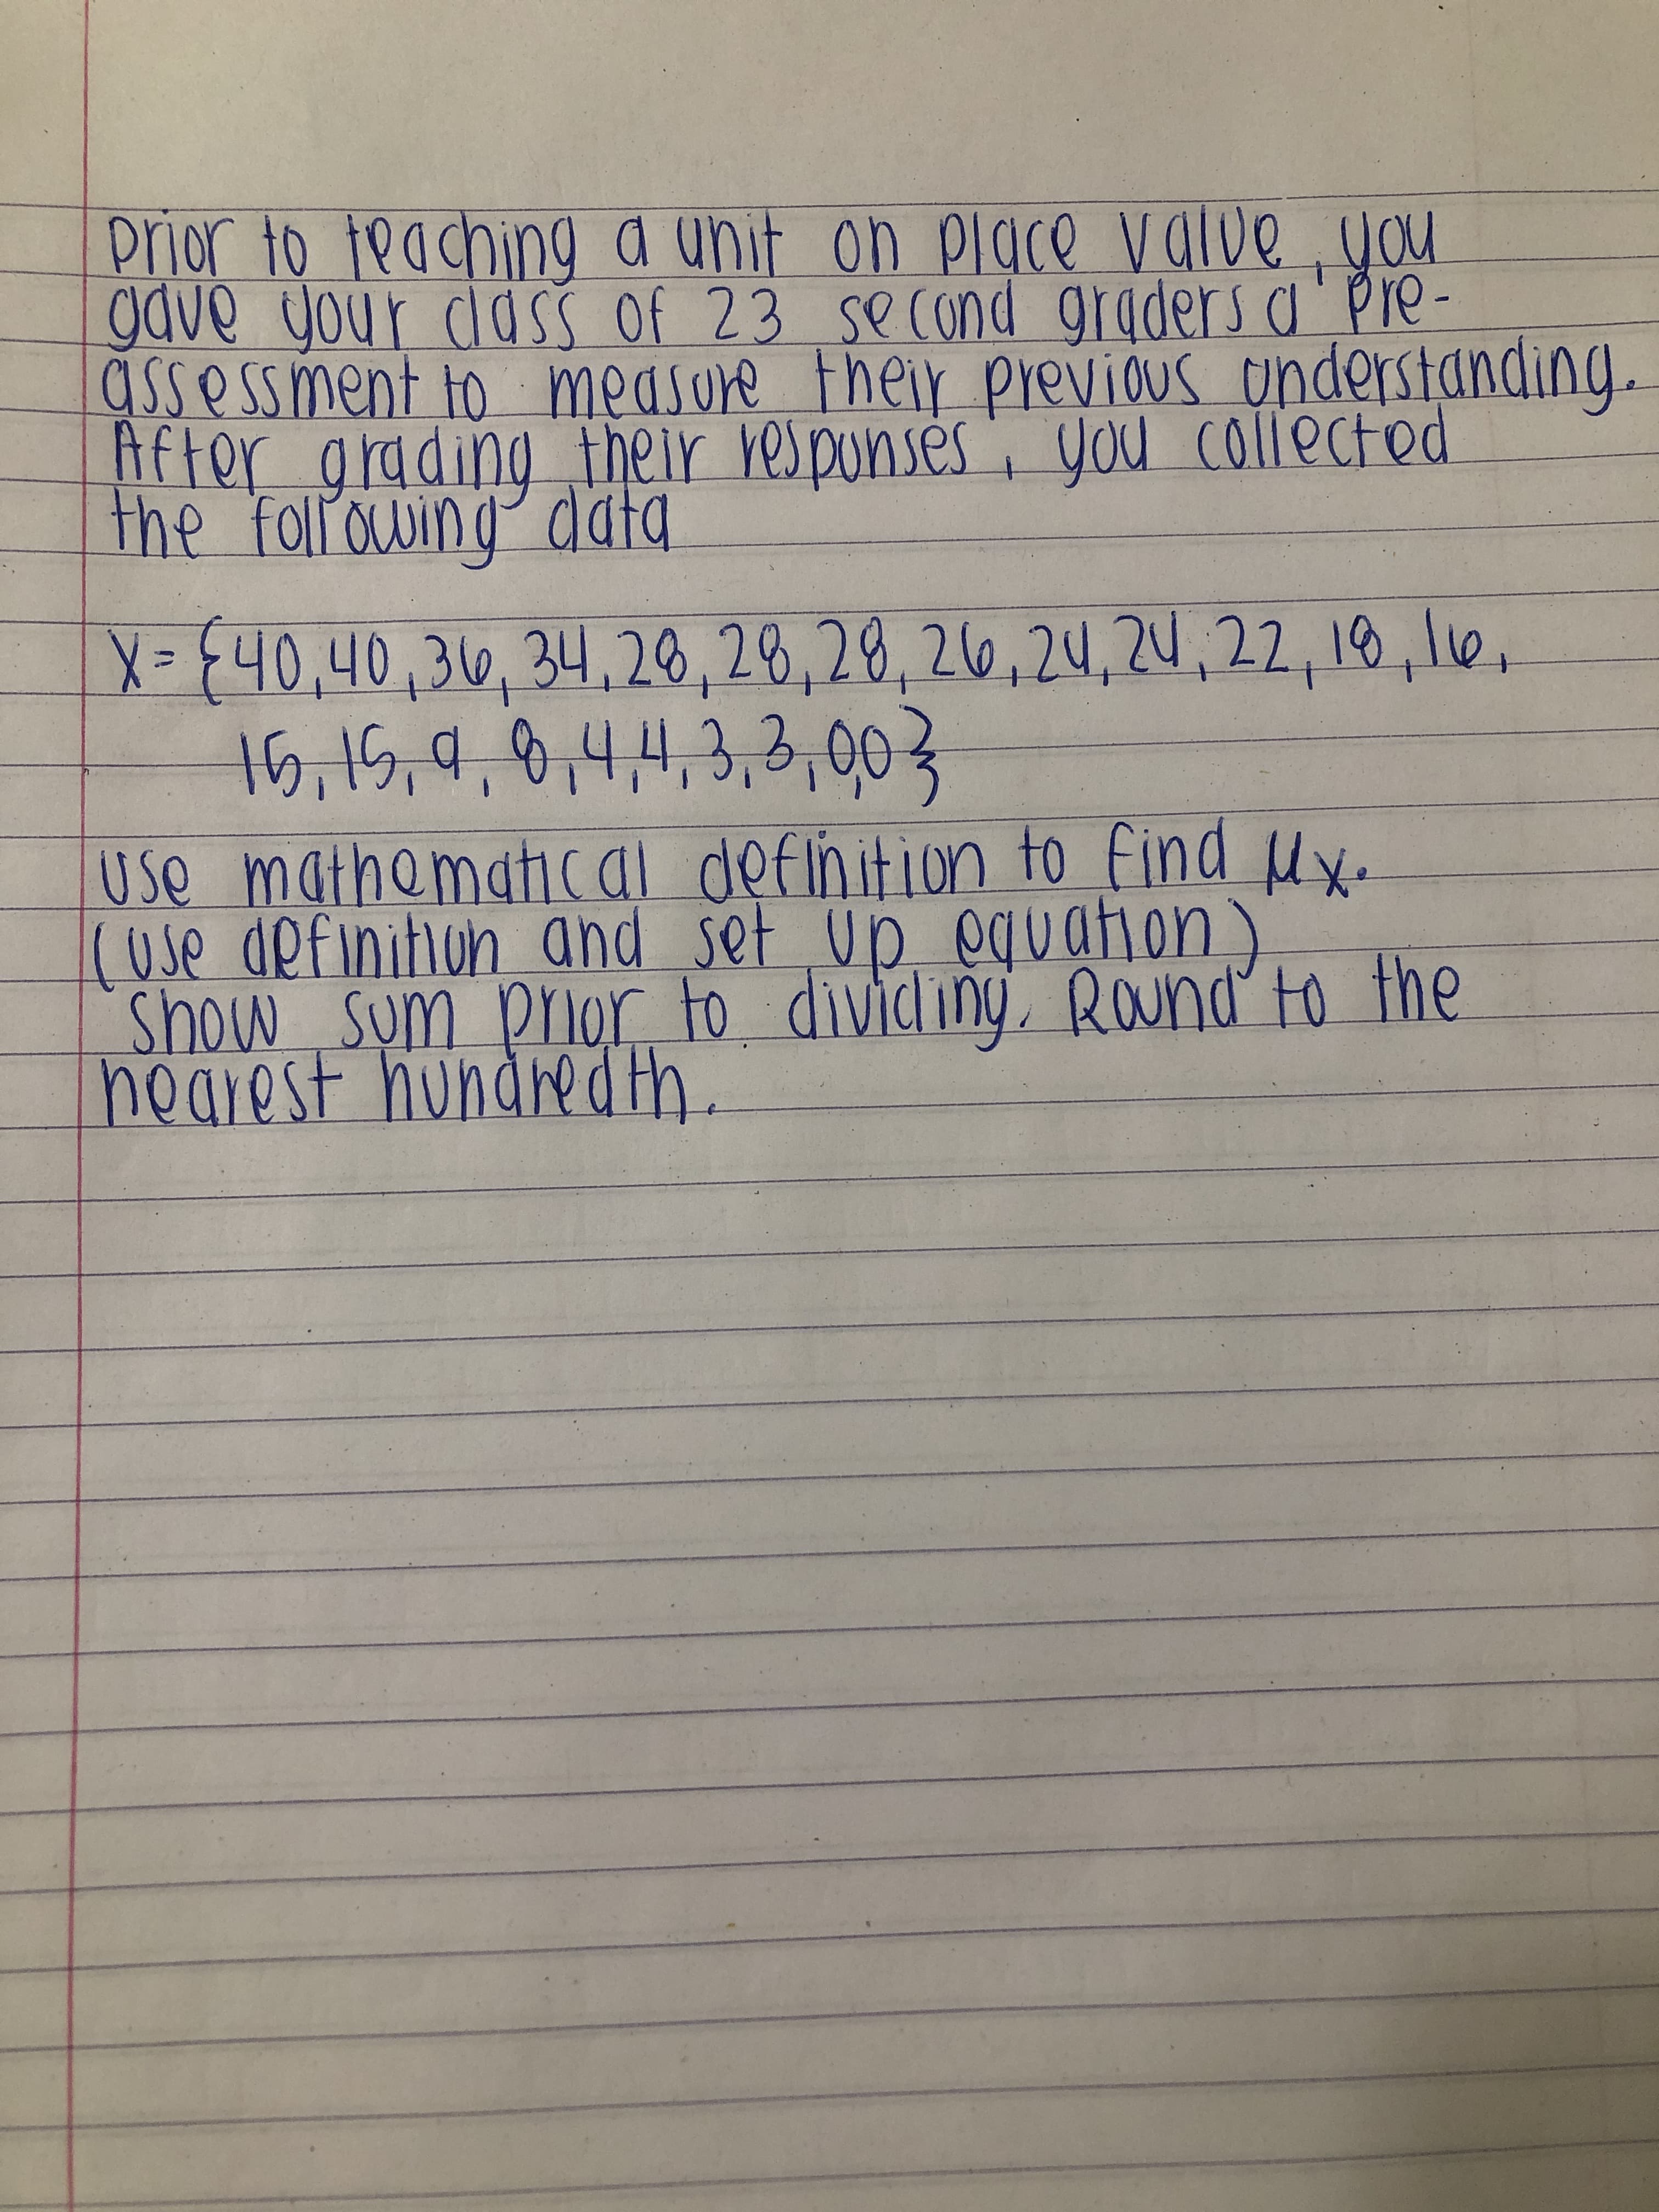 prior to teaching a unit on place value, you
gave your class of 23 second graders a pre-
assessment to measure their previous understanding.
After grading their responses, you collected
the following data
X = {40, 40, 36, 34, 28, 28, 28, 26, 24, 24, 22, 18, 16,
15, 15, 9, 8, 4, 4, 3, 3, 0, 0}
use mathematical definition to find μx.
(use definition and set up equation)
show sum prior to dividing. Round to the
nearest hundredth.